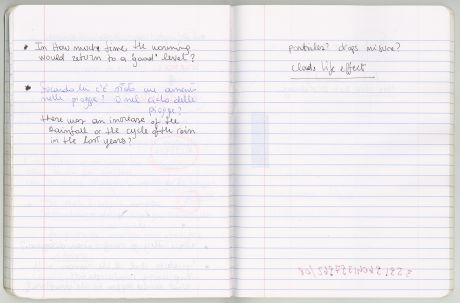 In How much time the warming
would return to a "good" level?
Secondo lei c'è stato un aumento
nelle piogge? O nel ciclo delle
piogge?
there was an increase of the
Rainfall or the cycle of the rain
in the last years?
particles? drops misure?
clouds life effect